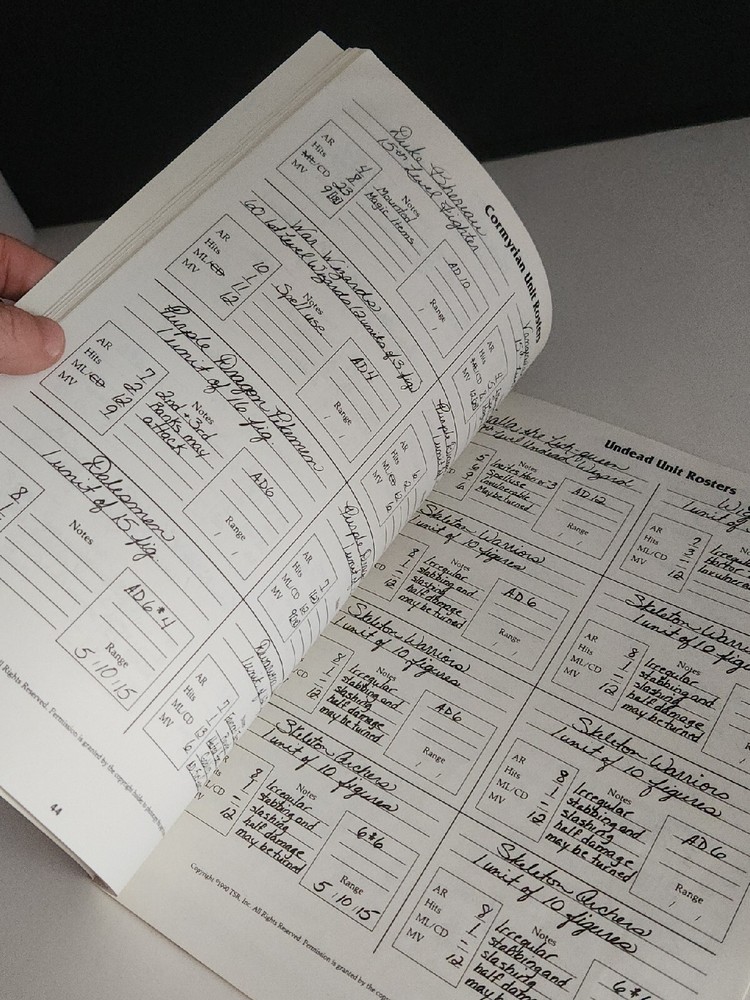 Cormyrian Unit Rosters
15th Level Fighter
AR 4
Hits
ML/CD 23
MV
Notes
Mounted
Magic Items
AD 10
Range
War Wizards
AR 10
Hits 1
ML/CD 11
MV 12
Notes
Spell use
AD 4
Range
Purple Dragon Pikemen
1 unit of 16 fig.
AR 7
Hits 2
ML/CD 12
MV 9
Notes
2nd + 3rd
Ranks may
attack
AD6
Range
Dalesmen
1 unit of 15 fig.
8
1
Notes
AD 6 * 4
Range
5 , 10 , 15
AR
Hits
ML/CD
MV
AR
Hits
ML/CD
MV
AR 7
Hits
ML/CD
MV
AR 7
Hits 1
ML/CD 13
MV 6
All Rights Reserved. Permission is granted by the copyright holder to
44
Undead Unit Rosters
Level Undead Wizard
5
6
9
6
Notes
Spell use
Invulnerable
May be turned
AD 12
Range
AR 7
Hits 3
ML/CD –
MV 12
Notes
Irregular
Skeleton Warriors
1 unit of 10 figures
8
1
–
12
Notes
Irregular
stabbing and
slashing
half damage
may be turned
AD 6
Range
Skeleton Warriors
1 unit of 10 fig
AR 8
Hits 1
ML/CD –
MV 12
Notes
Irregular
stabbing and
slashing
half damage
may be turned
Skeleton Warriors
1 unit of 10 figures
8
1
–
12
Notes
Irregular
stabbing and
slashing
half damage
may be turned
AD6
Range
Skeleton Warriors
1 unit of 10 figures
AR 8
Hits 1
ML/CD –
MV 12
Notes
Irregular
stabbing and
slashing
half damage
may be turned
AD 6
Range
Skeleton Archers
1 unit of 10 figures
8
1
–
12
Notes
Irregular
stabbing and
slashing
half damage
may be turned
6 * 6
Range
5 , 10 , 15
Skeleton Archers
1 unit of 10 figures
AR 8
Hits 1
ML/CD –
MV 12
Notes
Irregular
stabbing and
slashing
half
6 *
Copyright ©1990 TSR, Inc. All Rights Reserved. Permission is granted by the